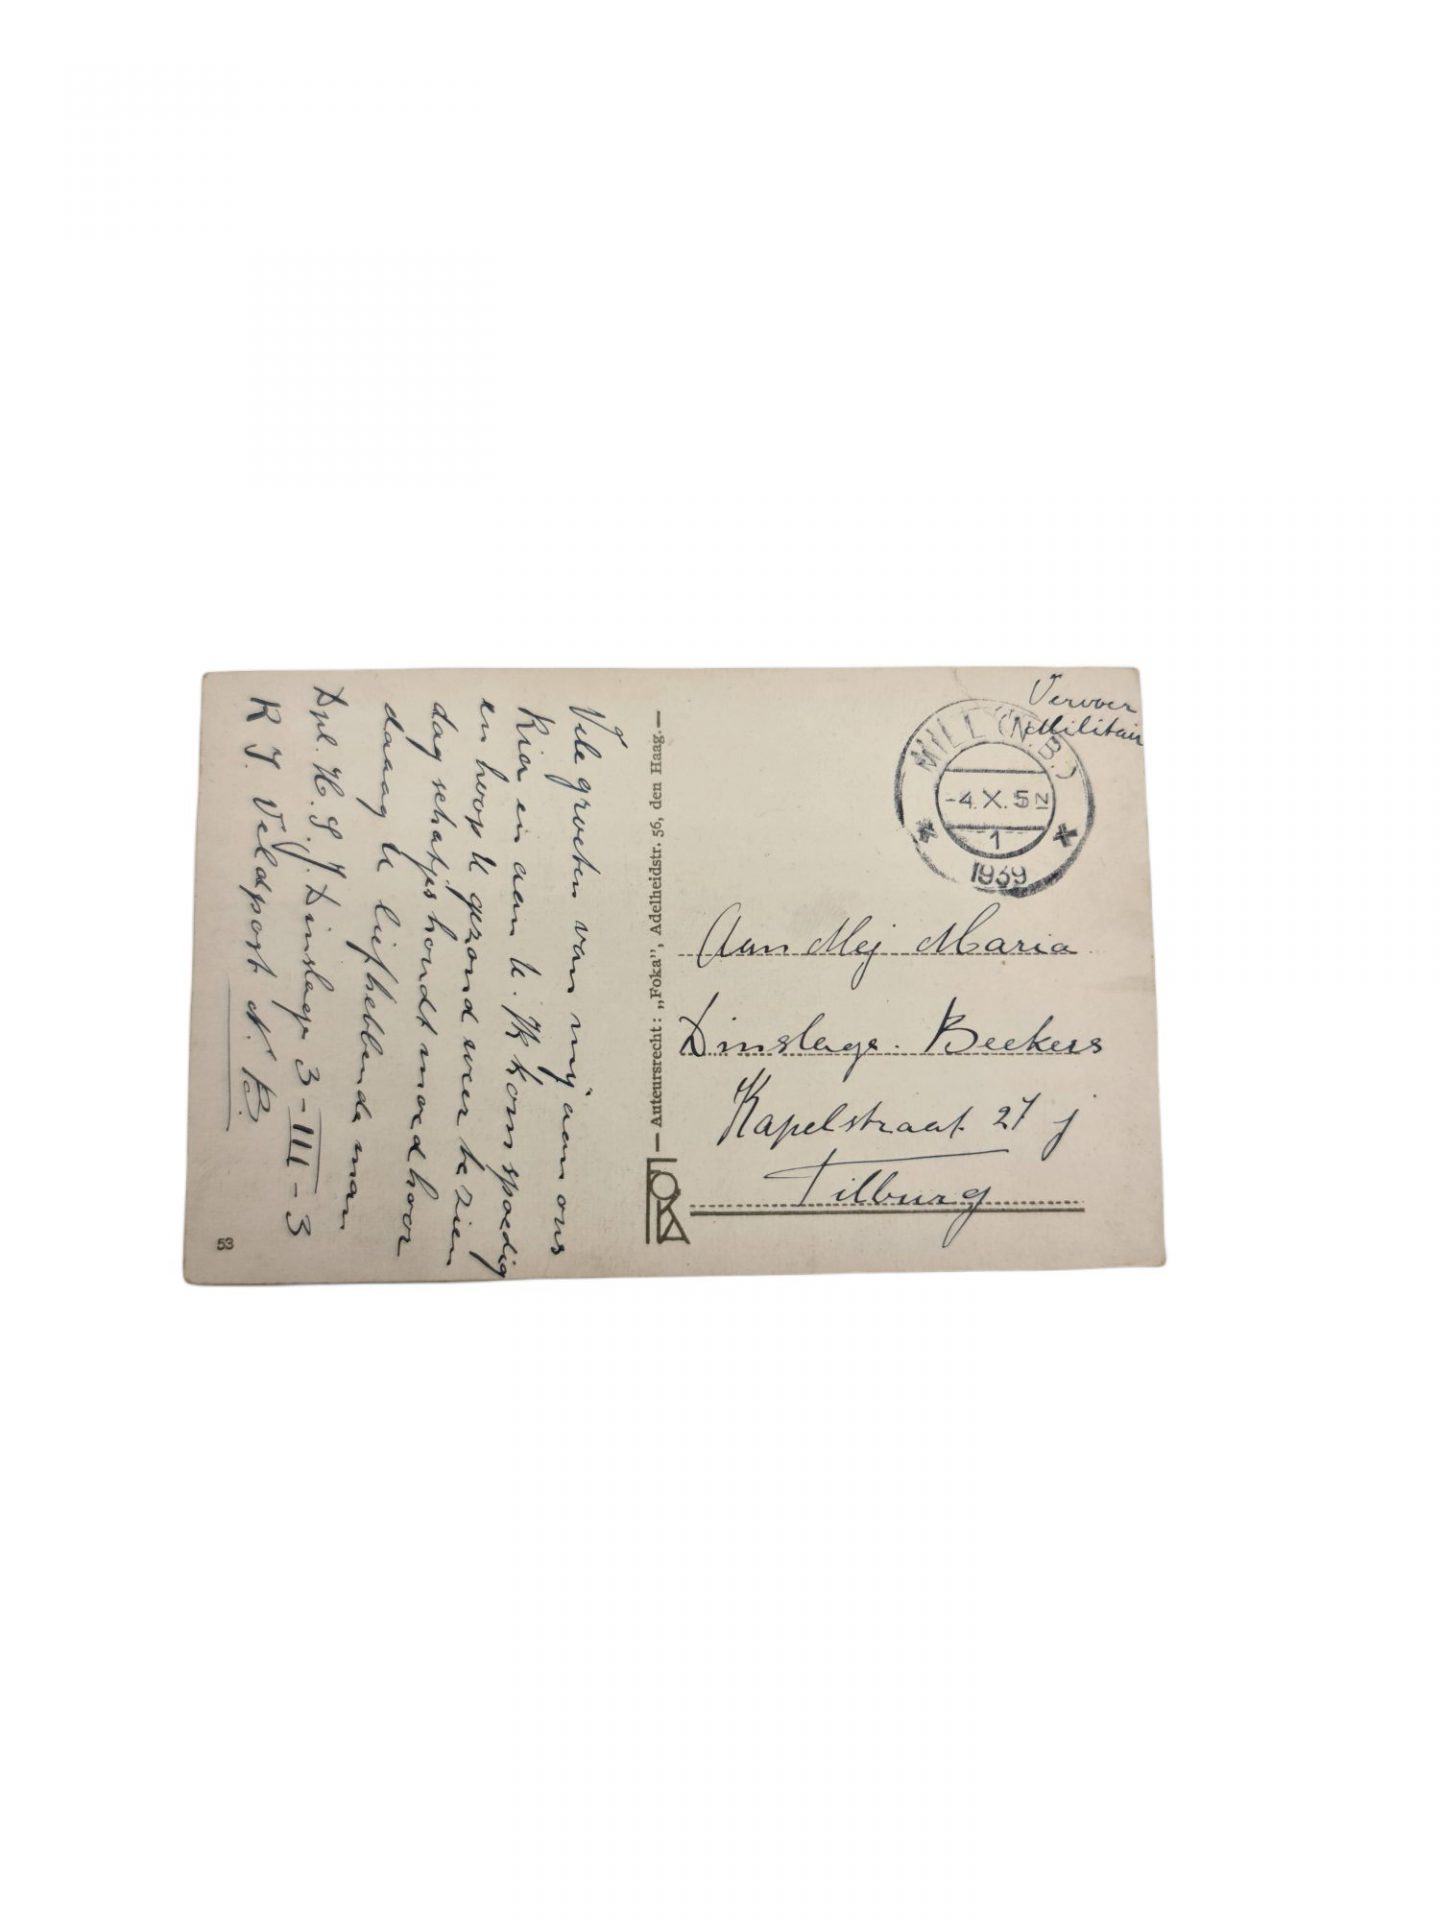 Vele groeten van mij aan ons
Kier en aan U. Ik kom spoedig
en hoop U gezond weer te zien
dag schatjs houdt moed hoor
daaag U liefhebbende man
Dpl. H. S. J. Dinslage 3-III-3
R I. Veldpost N. B.
53
— Auteursrecht: „Foka”, Adelheidstr. 56, den Haag.—
FOKA
Vervoer
Militair
MILL (N.B.)
-4.X.5N
1
1939
Aan Mej Maria
Dinslage. Beekers
Kapelstraat 27 j
Tilburg